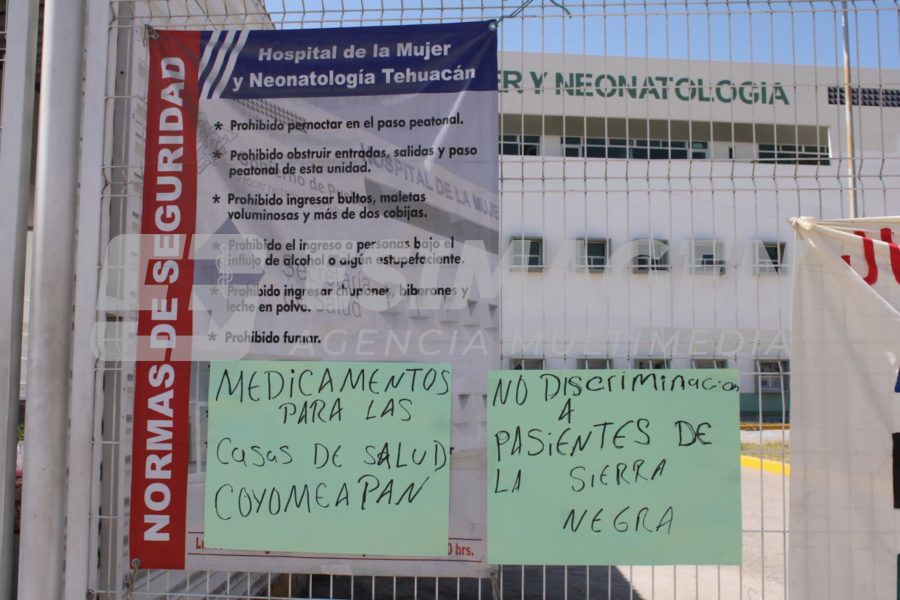 NORMAS DE SEGURIDAD
Hospital de la Mujer
y Neonatología Tehuacán
* Prohibido pernoctar en el paso peatonal.
* Prohibido obstruir entradas, salidas y paso
peatonal de esta unidad.
* Prohibido ingresar bultos, maletas
voluminosas y más de dos cobijas.
* Prohibido el ingreso a personas bajo el
influjo de alcohol o algún estupefaciente.
* Prohibido ingresar chupones, biberones y
leche en polvo.
* Prohibido fumar.
hrs.
HOSPITAL DE LA MUJE
Y NEONATOLOGIA
AGENCIA MULTIMEDIA
MEDICAMENTOS
PARA LAS
CASAS DE SALUD
COYOMEAPAN
NO DISCRIMINACION
A
PASIENTES DE
LA SIERRA
NEGRA